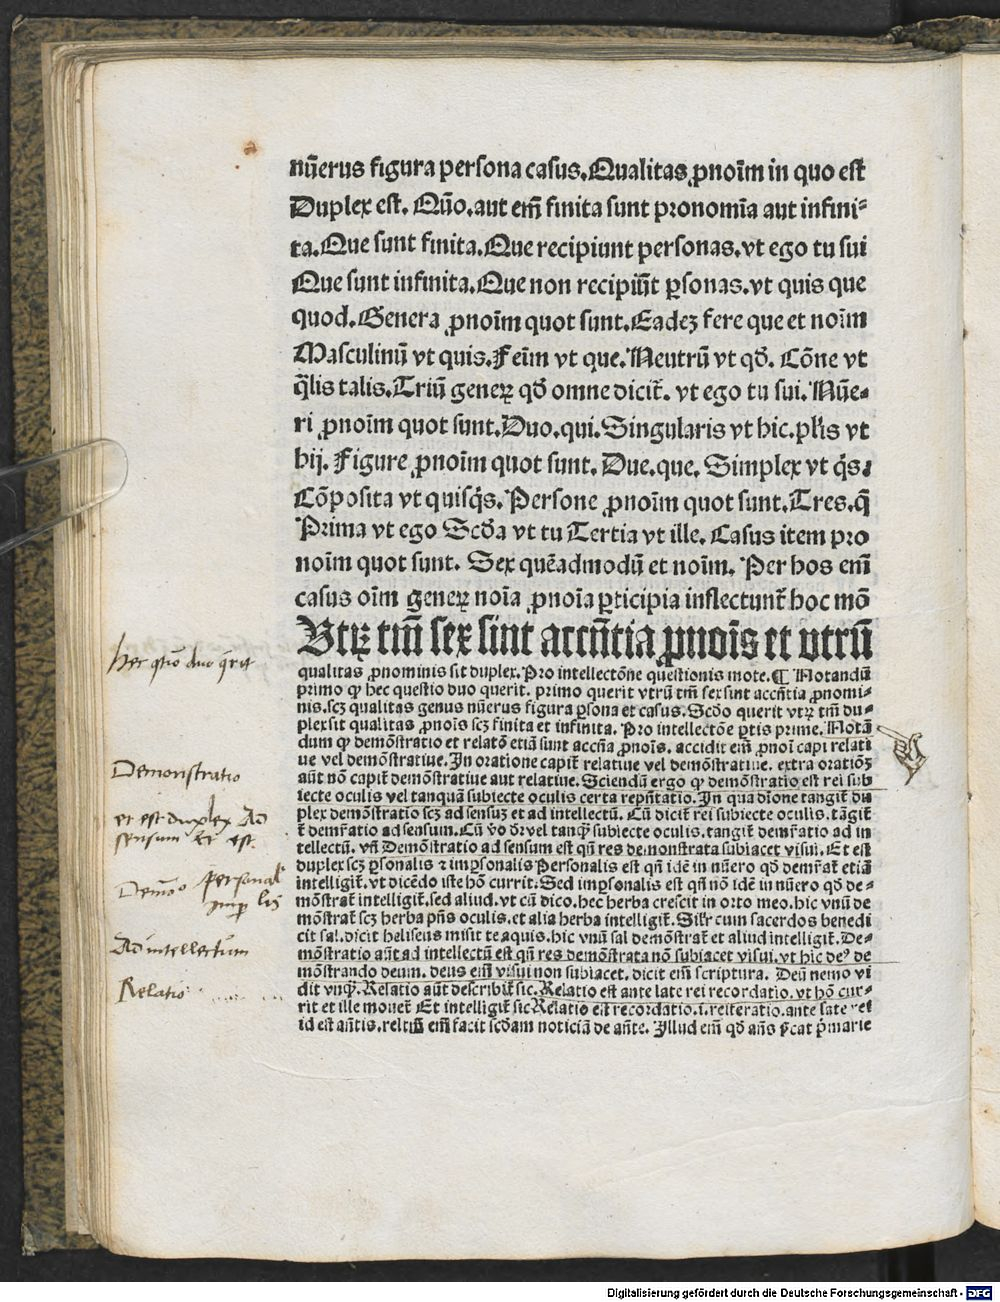 nūerus figura persona casus. Qualitas ꝓnoīm in quo est
Duplex est. Quō. aut em̄ finita sunt pronomīa aut infini⸗
ta. Que sunt finita. Que recipiunt personas. vt ego tu sui
Que sunt infinita. Que non recipiūt ꝑsonas. vt quis que
quod. Genera ꝓnoīm quot sunt. Eadeꝫ fere que et noīm
Masculinū vt quis. Feīm vt que. Neutrū vt qđ. Cōne vt
q̄lis talis. Triū generꝝ qđ omne dicit̄. vt ego tu sui. Nūe⸗
ri ꝓnoīm quot sunt. Duo. qui. Singularis vt hic. pl̄is vt
hij. Figure ꝓnoīm quot sunt. Due. que. Simplex vt q̇s.
Cōposita vt quisq̇s. Persone ꝓnoīm quot sunt. Tres. q̄
Prima vt ego Scđa vt tu Tertia vt ille. Casus item pro
noīm quot sunt. Sex quēadmodū et noīm. Per hos em̄
casus oīm generꝝ noīa ꝓnoīa ꝑticipia inflectunt̄ hoc mō
Vtꝝ tm̄ sex sint accn̄tia ꝓnoīs et vtrū
qualitas ꝓnominis sit duplex. Pro intellectōne questionis mote. ¶ Notandū
primo ꝙ hec questio duo querit. primo querit vtrū tm̄ sex sint accn̄tia ꝓnomi⸗
nis. scꝫ qualitas genus nūerus figura ꝑsona et casus. Scđo querit vtꝝ tm̄ du⸗
plex sit qualitas ꝓnoīs scꝫ finita et infinita. Pro intellectōe ꝑtis prime. Notā
dum ꝙ demōstratio et relatō etiā sunt accn̄a ꝓnoīs. accidit em̄ ꝓnoī capi relati
ue vel demōstratiue. In oratione capit̄ relatiue vel demōstratiue. extra oratiōꝫ
aūt nō capit̄ demōstratiue aut relatiue. Sciendū ergo ꝙ demōstratio est rei sub
iecte oculis vel tanquā subiecte oculis certa repn̄tatio. In qua dīone tangit̄ du
plex demōstratio scꝫ ad sensuꝫ et ad intellectū. Cū dicit̄ rei subiecte oculis. tāgit̄
t̄ demr̄atio ad sensum. Cū v̄o dr̄ vel tanq̄ subiecte oculis. tangit̄ demr̄atio ad in
tellectū. vn̄ Demōstratio ad sensum est qn̄ res demonstrata subiacet visui. Et est
duplex scꝫ ꝑsonalis ⁊ imꝑsonalis Personalis est qn̄ idē in nūero qđ demr̄at̄ etiā
intelligit̄. vt dicēdo iste hō currit. Sed imꝑsonalis est qn̄ nō idē in nūero qđ de⸗
mōstrat̄ intelligit̄. sed aliud. vt cū dico. hec herba crescit in orto meo. hic vnū de
mōstrat̄ scꝫ herba pn̄s oculis. et alia herba intelligit̄. Silr̄ cum sacerdos benedi
cit sal. dicit heliseus misit te aquis. hic vnū sal demōstrat̄ et aliud intelligit̄. De⸗
mōstratio aūt ad intellectū est qn̄ res demōstrata nō subiacet visui. vt hic deꝰ de
mōstrando deum. deus em̄ visui non subiacet. dicit em̄ scriptura. Deū nemo vi
dit vnqꝫ. Relatio aūt describit̄ sic. Relatio est ante late rei recordatio. vt hō cur⸗
rit et ille mouet̄ Et intelligit̄ sic Relatio est recordatio. i. reiteratio. ante late rei
id est an̄tis. reltm̄ em̄ facit scđam noticiā de an̄te. Illud em̄ qđ an̄s p̄cat p̄marie
Hec q̄tiō duo q̄rit
Demonstratio
et est duplex Ad
sensum Et est
Demōo personal
imp lis
Ad intellectum
Relatio
Digitalisierung gefördert durch die Deutsche Forschungsgemeinschaft - DFG